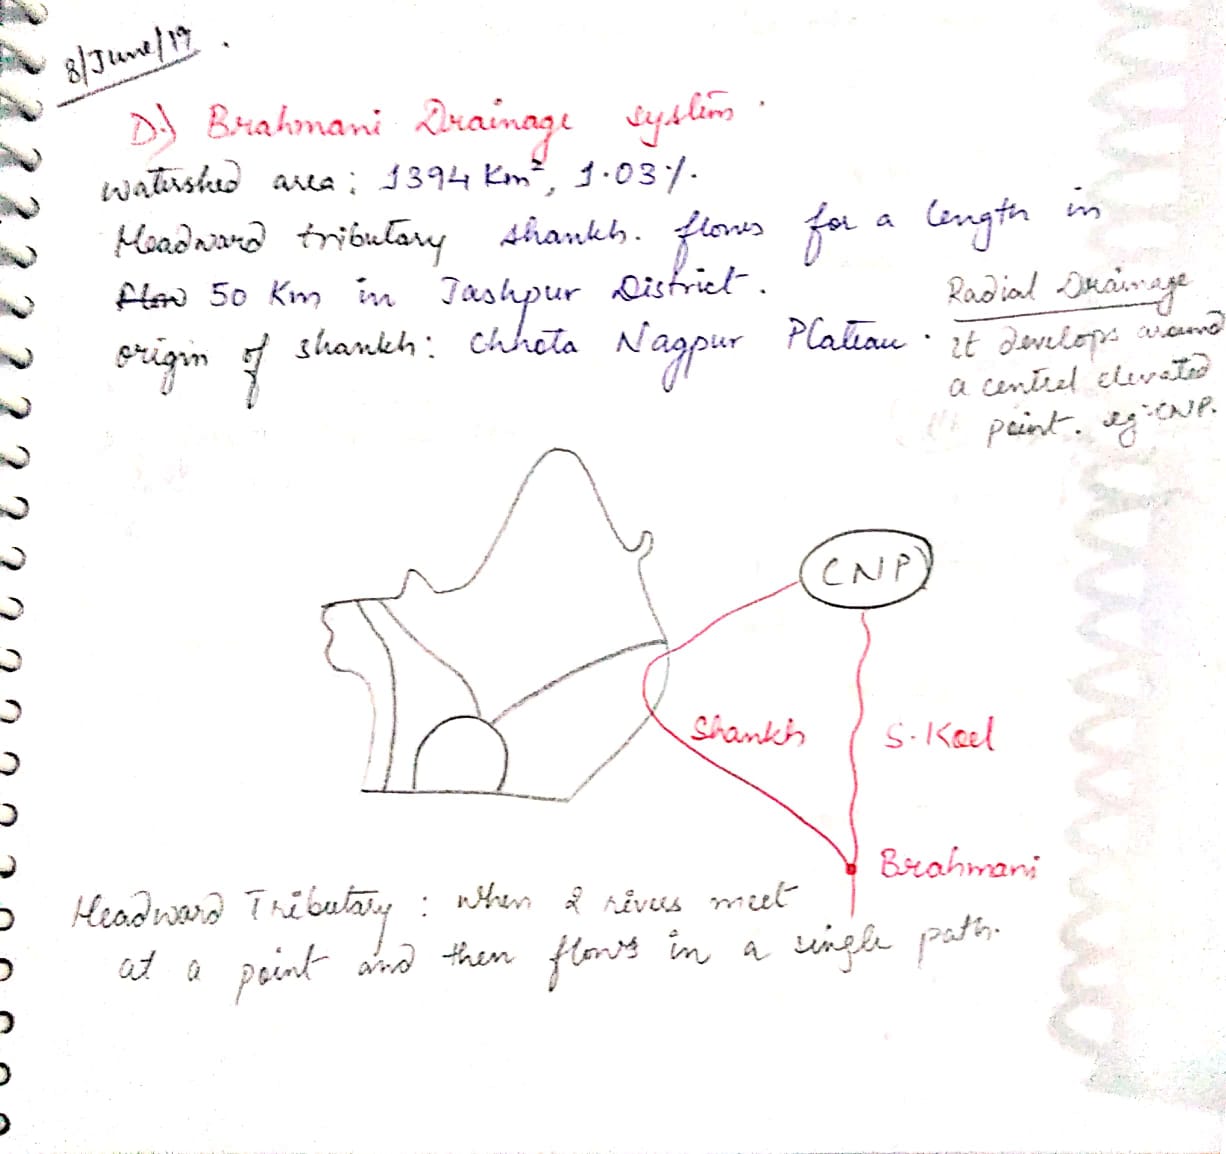 8/June/19.
D.) Brahmani Drainage system.
watershed area: 1394 Km², 1.03%.
Headward tributary shankh. flows for a length in
flow 50 Km in Jashpur District.
origin of shankh: Chhota Nagpur Plateau.
Radial Drainage
it develops around
a central elevated
point. eg:- CNP.
CNP
Shankh
S. Koel
Brahmani
Headward Tributary: when 2 rivers meet
at a point and then flows in a single path.